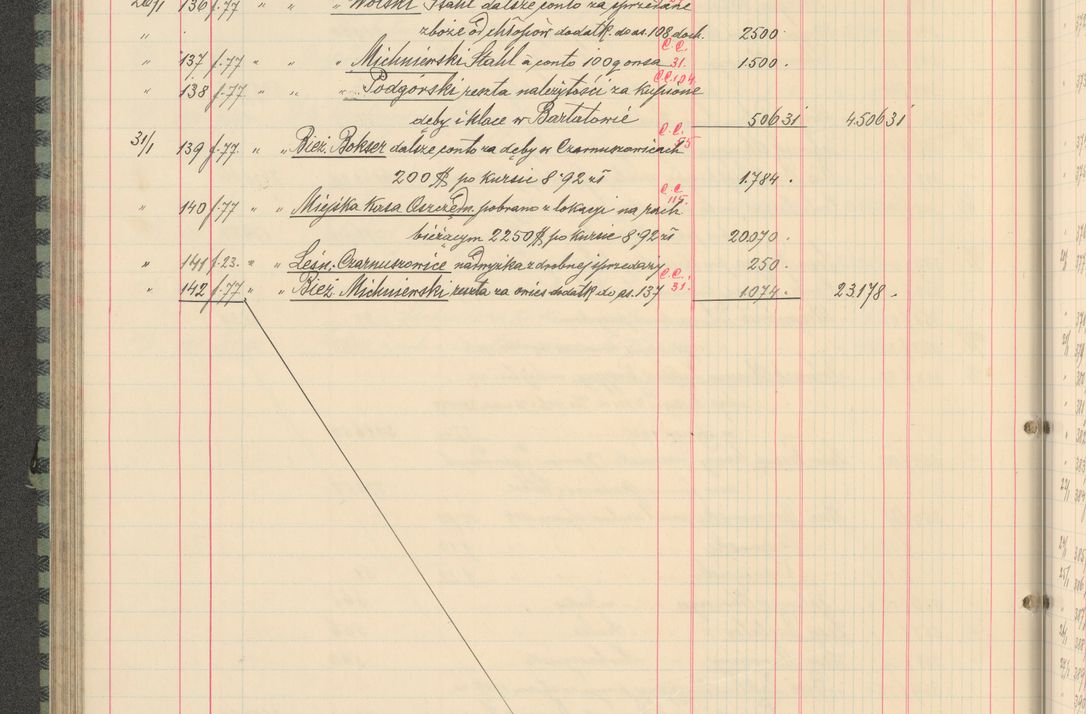 26/1 136 f.77 " " " Wolski Stahl dalsze conto za sprzedane
" zboże od chłopów dodatk. do as. 108 doch. 2500 .
" 137 f.77 " " " Michniewski Stahl à conto 100 q owsa C.C. 31. 1.500 .
" 138 f.77 " " " Podgórski reszta należytości za kupione C.C. 104
dęby i klace w Bartatowie 506 31 4.506 31
31/1 139 f.77 " " Bież. Bokser dalsze conto za dęby w Czarnuszowicach C.C. 55
200 $ po kursie 8'92 zł 1.784 .
" 140 f.77 " " Miejska Kasa Oszczędn. pobrano z lokacji na rach C.C. 115.
bieżącym 2250 $ po kursie 8'92 zł 20.070 .
" 141 f.23. " " Leśn. Czarnuszowice nadwyżka z drobnej sprzedaży 250 .
" 142 f.77 " " Bież. Michniewski reszta za owies dodatk do as. 137 C.C. 31. 1.074 . 23.178 .